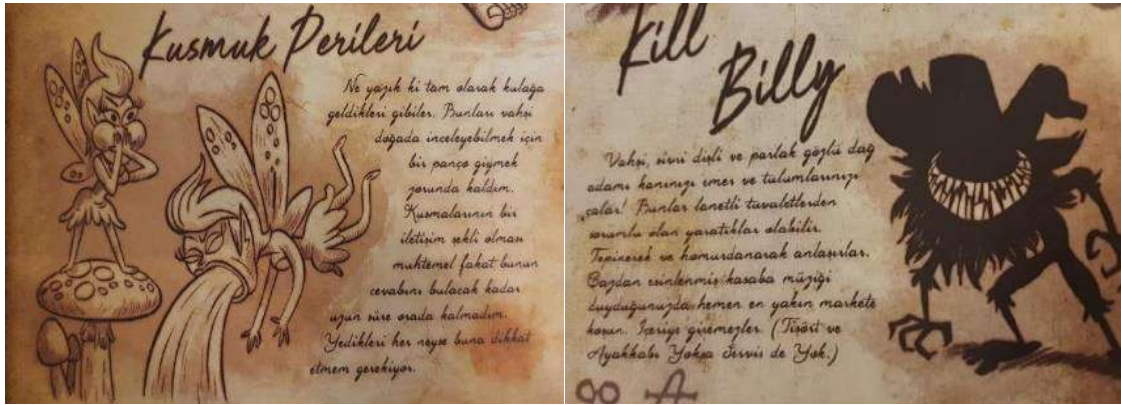 Kusmuk Perileri
Ne yazık ki tam olarak kulağa
geldikleri gibiler. Bunları vahşi
doğada inceleyebilmek için
bir panço giymek
zorunda kaldım.
Kusmalarının bir
iletişim şekli olması
muhtemel fakat bunun
cevabını bulacak kadar
uzun süre orada kalmadım.
Yedikleri her neyse buna dikkat
etmem gerekiyor.
Kill
Billy
Vahşi, sivri dişli ve parlak gözlü dağ
adamı kanınızı emer ve tulumlarınızı
çalar! Bunlar lanetli tuvaletlerden
sorumlu olan yaratıklar olabilir.
Tepinerek ve homurdanarak anlaşırlar.
Cazdan esinlenmiş kasaba müziği
duyduğunuzda hemen en yakın markete
koşun. İçeriye giremezler. (Tişört ve
Ayakkabı Yoksa Servis de Yok.)